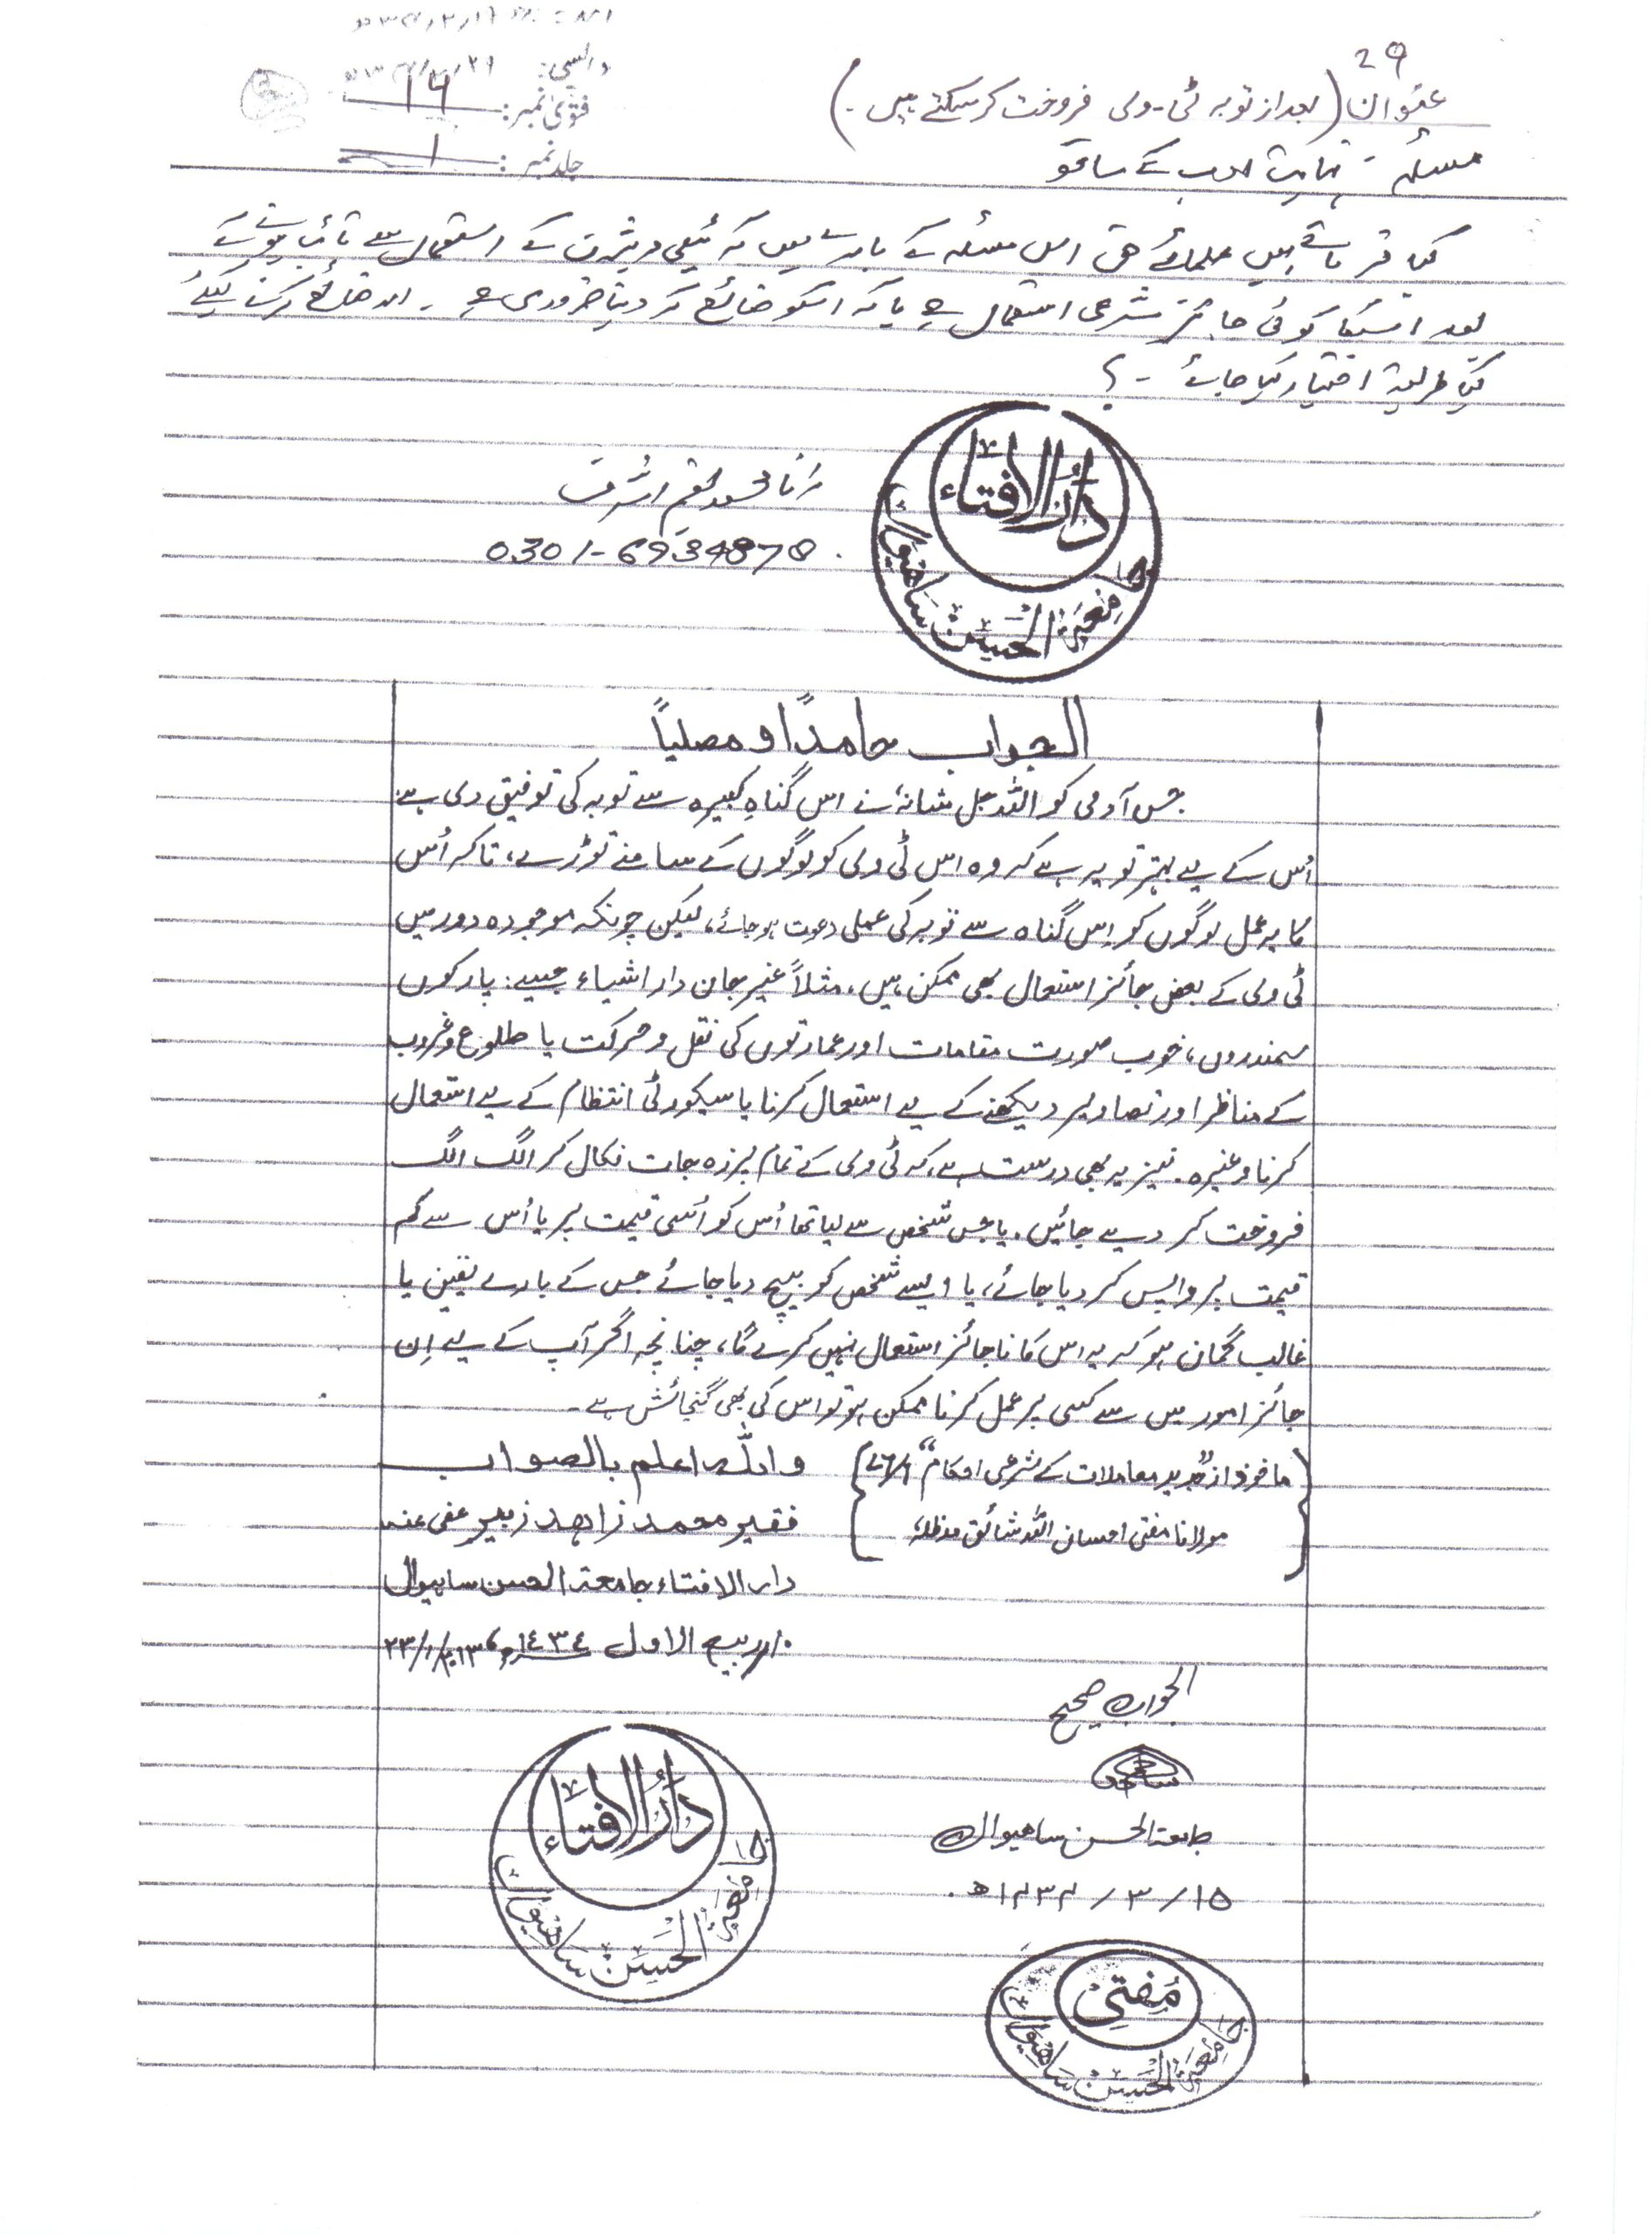 29
واپسی:
فتویٰ نمبر: ۱۶
جلد نمبر: ۱
عنوان (بعد از توبہ ٹی-وی فروخت کر سکتے ہیں۔)
مسئلہ - نہایت ادب کے ساتھ
کیا فرماتے ہیں علمائے حق اس مسئلہ کے بارے میں کہ ٹیلی ویژن کے استعمال سے تائب ہونے کے
بعد اسکا کوئی جائز شرعی استعمال ہے یا کہ اسکو ضائع کر دینا ضروری ہے۔ اور ضائع کرنے کیلئے
کیا طریقہ اختیار کیا جائے - ؟
دَارُ الافتاء
جامعۃ الحسن ساھیوال
رانا محمد اشرف
0301-6934878
الجواب حامدًا و مصلیاً
جس آدمی کو اللہ جل شانہٗ نے اس گناہِ کبیرہ سے توبہ کی توفیق دی ہے
اُس کے لیے بہتر تو یہ ہے کہ وہ اس ٹی وی کو لوگوں کے سامنے توڑ دے، تاکہ اُس
کا یہ عمل لوگوں کو اِس گناہ سے توبہ کی عملی دعوت ہو جائے، لیکن چونکہ موجودہ دور میں
ٹی وی کے بعض جائز استعمال بھی ممکن ہیں، مثلاً غیر جان دار اشیاء جیسے: پارکوں
سمندروں، خوب صورت مقامات اور عمارتوں کی نقل و حرکت یا طلوع و غروب
کے مناظر اور تصاویر دیکھنے کے لیے استعمال کرنا یا سیکورٹی انتظام کے لیے استعمال
کرنا وغیرہ۔ نیز یہ بھی درست ہے، کہ ٹی وی کے تمام پرزہ جات نکال کر الگ الگ
فروخت کر دیے جائیں، یا جس شخص سے لیا تھا اُس کو اُسی قیمت پر یا اُس سے کم
قیمت پر واپس کر دیا جائے، یا ایسے شخص کو بیچ دیا جائے جس کے بارے یقین یا
غالب گمان ہو کہ یہ اس کا ناجائز استعمال نہیں کرے گا، چنانچہ اگر آپ کے لیے اِن
جائز امور میں سے کسی پر عمل کرنا ممکن ہو تو اس کی بھی گنجائش ہے۔
ماخوذ از "جدید معاملات کے شرعی احکام"
مولانا مفتی احسان اللہ شائق مدظلہٗ
واللہ اعلم بالصواب
فقیر محمد زاہد زبیر عفی عنہ
دار الافتاء جامعۃ الحسن ساہیوال
۱۰/ربیع الاول ۱٤۳٤ھ ۲۳/۱/۲۰۱۳ء
الجواب صحیح
جامعۃ الحسن ساھیوال
۱۵/۳/۱۴۳۴ھ
دَارُ الافتاء
جامعۃ الحسن ساھیوال
مُفتی
جامعۃ الحسن ساھیوال